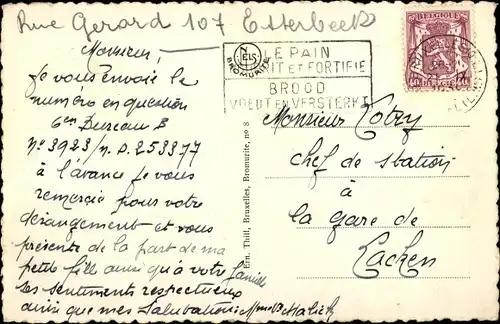 Rue Gerard 107 Etterbeek
Monsieur,
Je vous envoie le
numéro en question
6em Bureau B
N° 3923/N. D. 253377
à l'avance je vous
remercie pour votre
dérangement et vous
présente de la part de ma
petite fille ainsi qu'à votre famille
les sentiments respectueux
ainsi que mes salutations
NELS
BROMURITE
LE PAIN
NOURRIT ET FORTIFIE
BROOD
VOEDT EN VERSTERKT
BELGIQUE
Ern. Thill, Bruxelles, Bromurite, no 8
Monsieur
chef de station
à
la gare de
Laeken